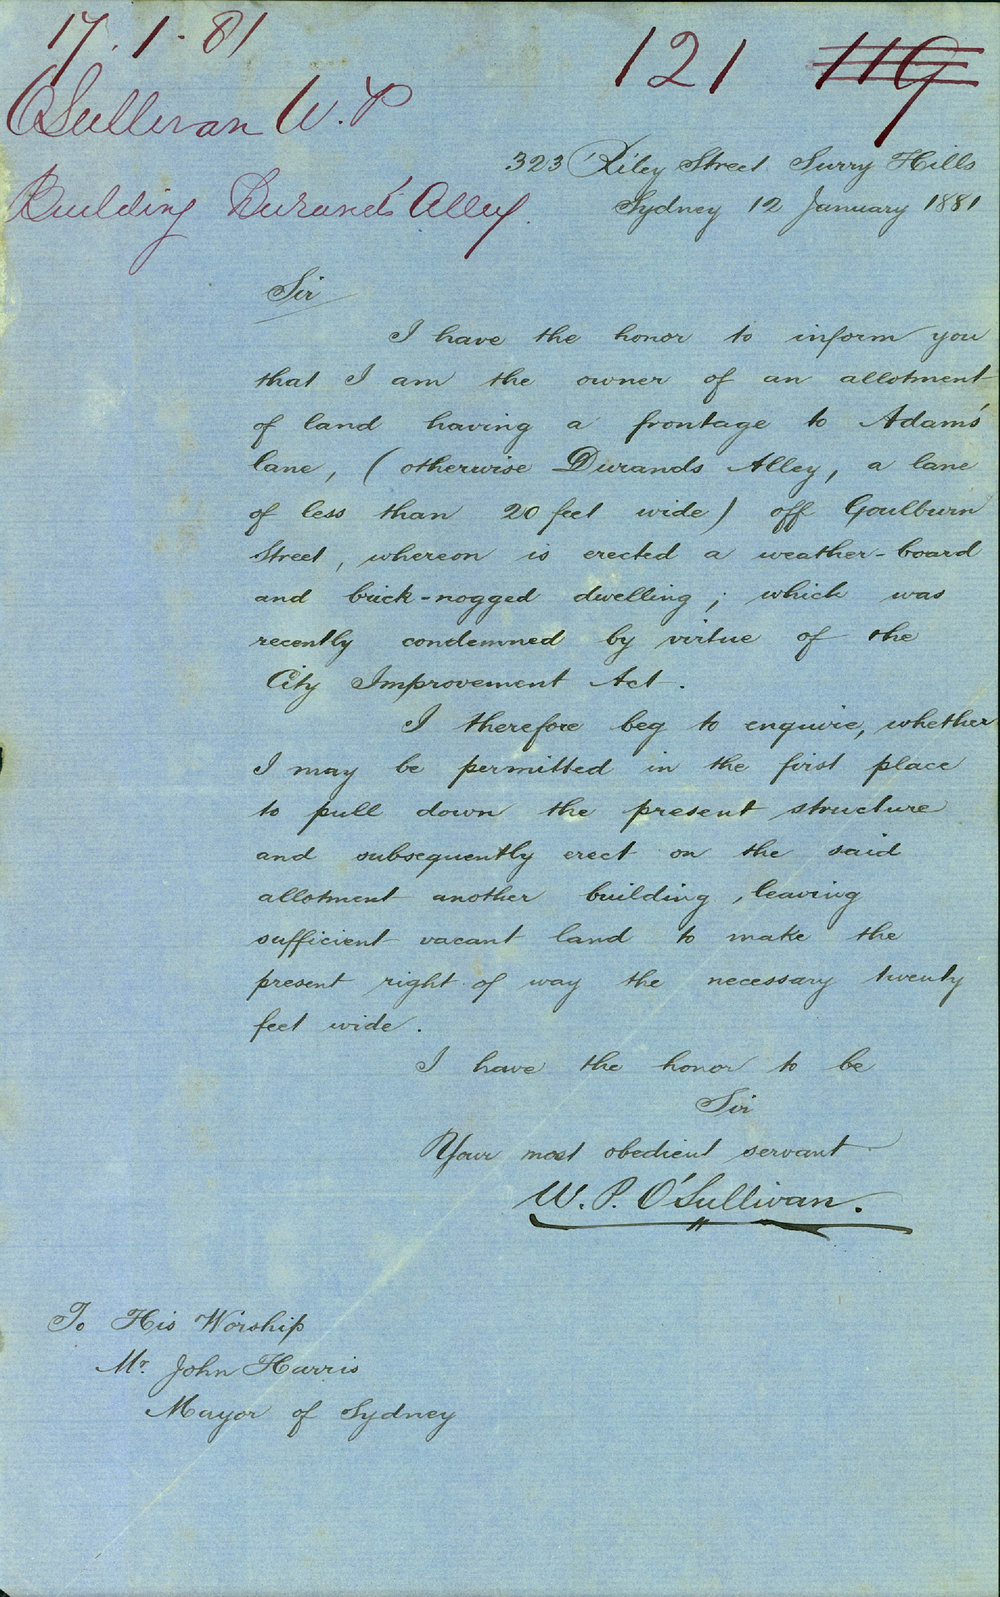 17.1.81
121 119
O'Sullivan W.P
Building Durand's Alley.
323 Riley Street Surry Hills
Sydney 12 January 1881
Sir
I have the honor to inform you
that I am the owner of an allotment
of land having a frontage to Adam's
lane, (otherwise Durands Alley, a lane
of less than 20 feet wide) off Goulburn
Street, whereon is erected a weather-board
and brick-nogged dwelling; which was
recently condemned by virtue of the
City Improvement Act.
I therefore beg to enquire, whether
I may be permitted in the first place
to pull down the present structure
and subsequently erect on the said
allotment another building, leaving
sufficient vacant land to make the
present right of way the necessary twenty
feet wide.
I have the honor to be
Sir
Your most obedient servant
W. P. O'Sullivan.
To His Worship
Mr. John Harris
Mayor of Sydney